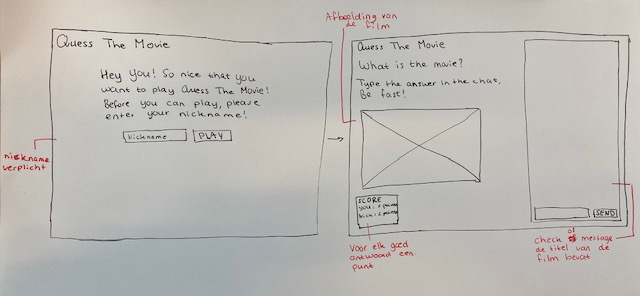 Quess The Movie
Hey You! So nice that you
want to play Quess The Movie!
Before you can play, please
enter your nickname!
Nickname
PLAY
nickname
verplicht
Afbeelding van
de film
Quess The Movie
What is the movie?
Type the answer in the chat.
Be fast!
SCORE
You: 
Voor elk goed
antwoord een
punt
SEND
check of message
de titel van de
film bevat